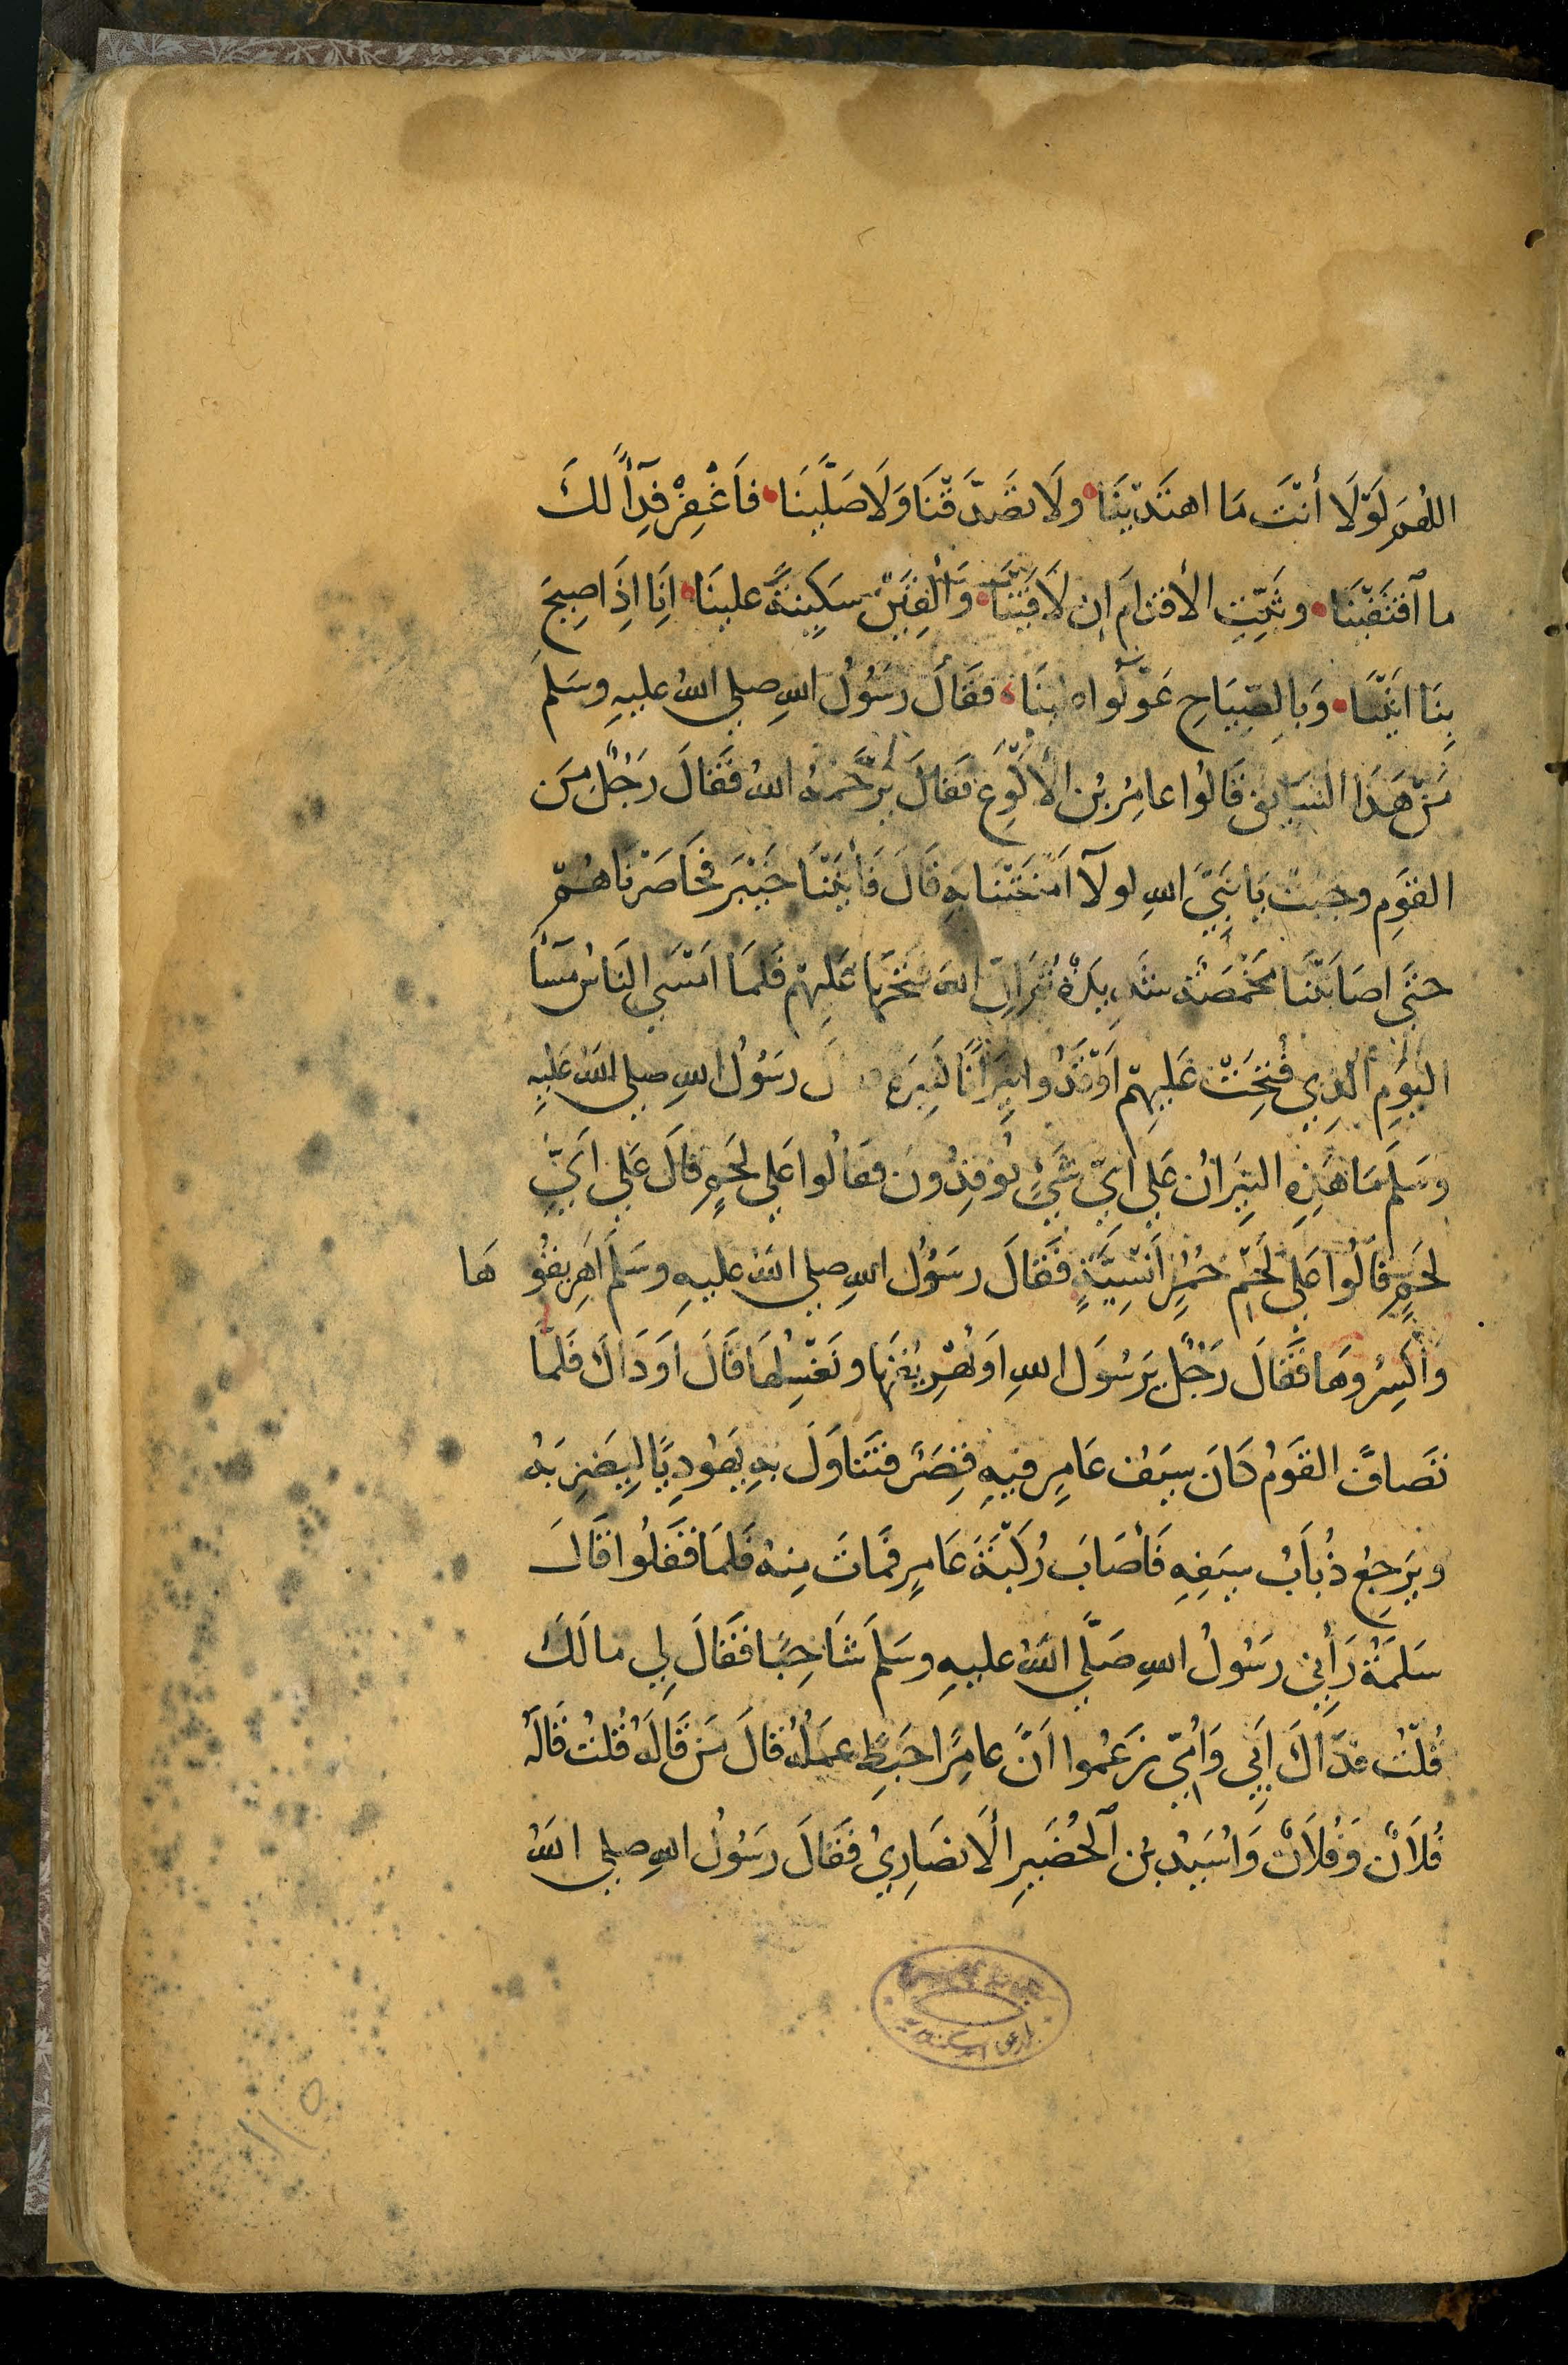 اللهُمَّ لَوْلَا أَنْتَ مَا اهتَدَيْنَا وَلَا تَصَدَّقْنَا وَلَا صَلَّيْنَا فَاَغْفِرْ فِدَآءً لكَ
ما آقتَفَيْنَا وثَبِّتِ الأقدَامَ اِن لَاقَيْنَا وَأَلقِيَنْ سَكِينَةً علينَا اِنَا اِذَا صِيحَ
بِنَا اتَيْنَا وَبِالصِّيَاحِ عَوَّلُوا علينَا فقَالَ رَسُولُ اللهِ صلي اللهُ عليهِ وسَلمَ
مَنْ هَذَا السَايِقُ قَالُوا عامِرُ بْنُ الأَكْوَعِ فقَالَ يَرْحَمُهُ اللهُ فَقَالَ رَجُلٌ مِنَ
القوَمِ وجَبَتْ يَا نَبِيَّ اللهِ لولآ اَمْتَعْتَنَا بِهِ قَالَ فَأَتَيْنَا خَيْبَرَ فحَاصَرْنَاهُمْ
حتَّى اصَابَتْنَا مَخْمَصَةٌ شَدِيدَةٌ ثمَّ اِنَّ اللهَ فتحَهَا عَلَيهمْ فَلمَا امْسَي النَاسُ مَسَآءَ
اليَوَمِ الَّذِي فُتِحَتْ عَليهِمْ اَوْقَدُوا نِيرَانًا كَثِيرَةً رَسُولُ اللهِ صلي اللهُ عَليهِ
وسَلمَ مَا هَذِهِ النِيرَانُ عَلي أَيِّ شَيْءٍ تُوقِدُونَ فقالُوا عَلي لحَمٍ قالَ عَلي اَيِّ
لحَمٍ قَالُوا عَلَي لَحْمِ حُمُرٍ اَنَسِيَّةٍ فَقَالَ رسَوُلُ اللهِ صلي اللهُ عليهِ وسَلمَ اَهْرِيقُوهَا
وَاَكْسِرُوهَا فَقَالَ رَجُلٌ يَرَسُولَ اللهِ اَوَنُهْرِيْقُهَا ونَغْسِلُهَا قَالَ اَوَذَاكَ فَلمَا
تصَافَّ القَوَمُ كَانَ سَيفُ عَامِرٍ فيهِ قِصَرٌ فتَنَاوَلَ بهِ يَهُودِيًّا لِيَضْرِبَهُ
ويَرَجِعُ ذُبَابُ سيَفِهِ فَأَصَابَ رُكْبَةَ عَامِرٍ فمَاتَ مِنهُ فَلمَا قَفَلُوا قَالَ
سَلمَةُ رَأَنِي رسَولُ اللهِ صَلَّي اللهُ عليهِ وسَلمَ شَاحِبًا فقَالَ لِي مالَكَ
قُلْتُ فدَاكَ اَبِي وَأُمِّي زعَمُوا اَنَّ عامِرًا حَبِطَ عمَلُهُ قالَ مَنْ قَالَهُ قُلتُ قَالَهُ
فُلَانٌ وَفُلَانٌ وَاُسَيْدُ بنُ اَلحُضَيرِ الَانصَارِيُّ فقَالَ رَسَولُ اللهِ صلي اللهُ